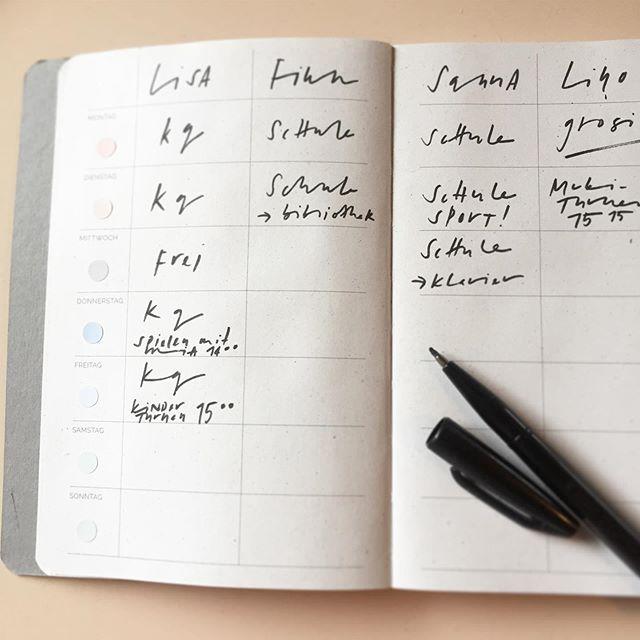 Lisa Finn Sanna Lino
MONTAG
kg Schule Schule grosi
DIENSTAG
kg Schule Schule Muki-
→ bibliothek SPORT! Turnen
15 15
MITTWOCH
Frei Schule
→ klavier
DONNERSTAG
kg
spielen mit
14 00
FREITAG
kg
KINDER
Turnen 15 00
SAMSTAG
SONNTAG